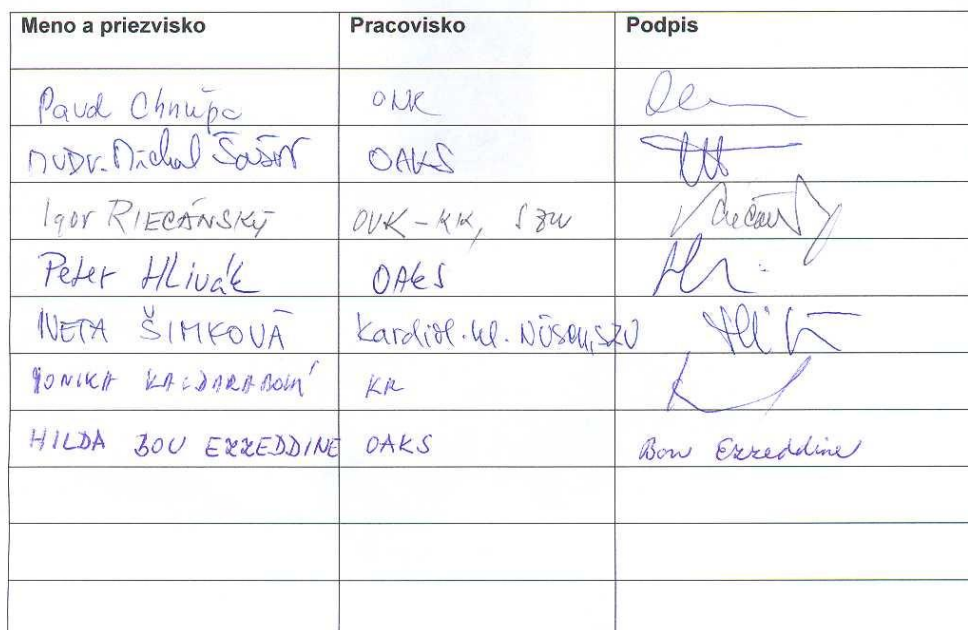 Meno a priezvisko Pracovisko Podpis
Pavol Chnúpa ONK
MUDr. Michal OAKS
Igor RIEČANSKÝ OVK - KK, SZU
Peter Hlivák OAKS
IVETA ŠIMKOVÁ Kardiol. kl. NÚSCH, SZU
MONIKA KR
HILDA BOU EZZEDDINE OAKS Bou Ezzeddine